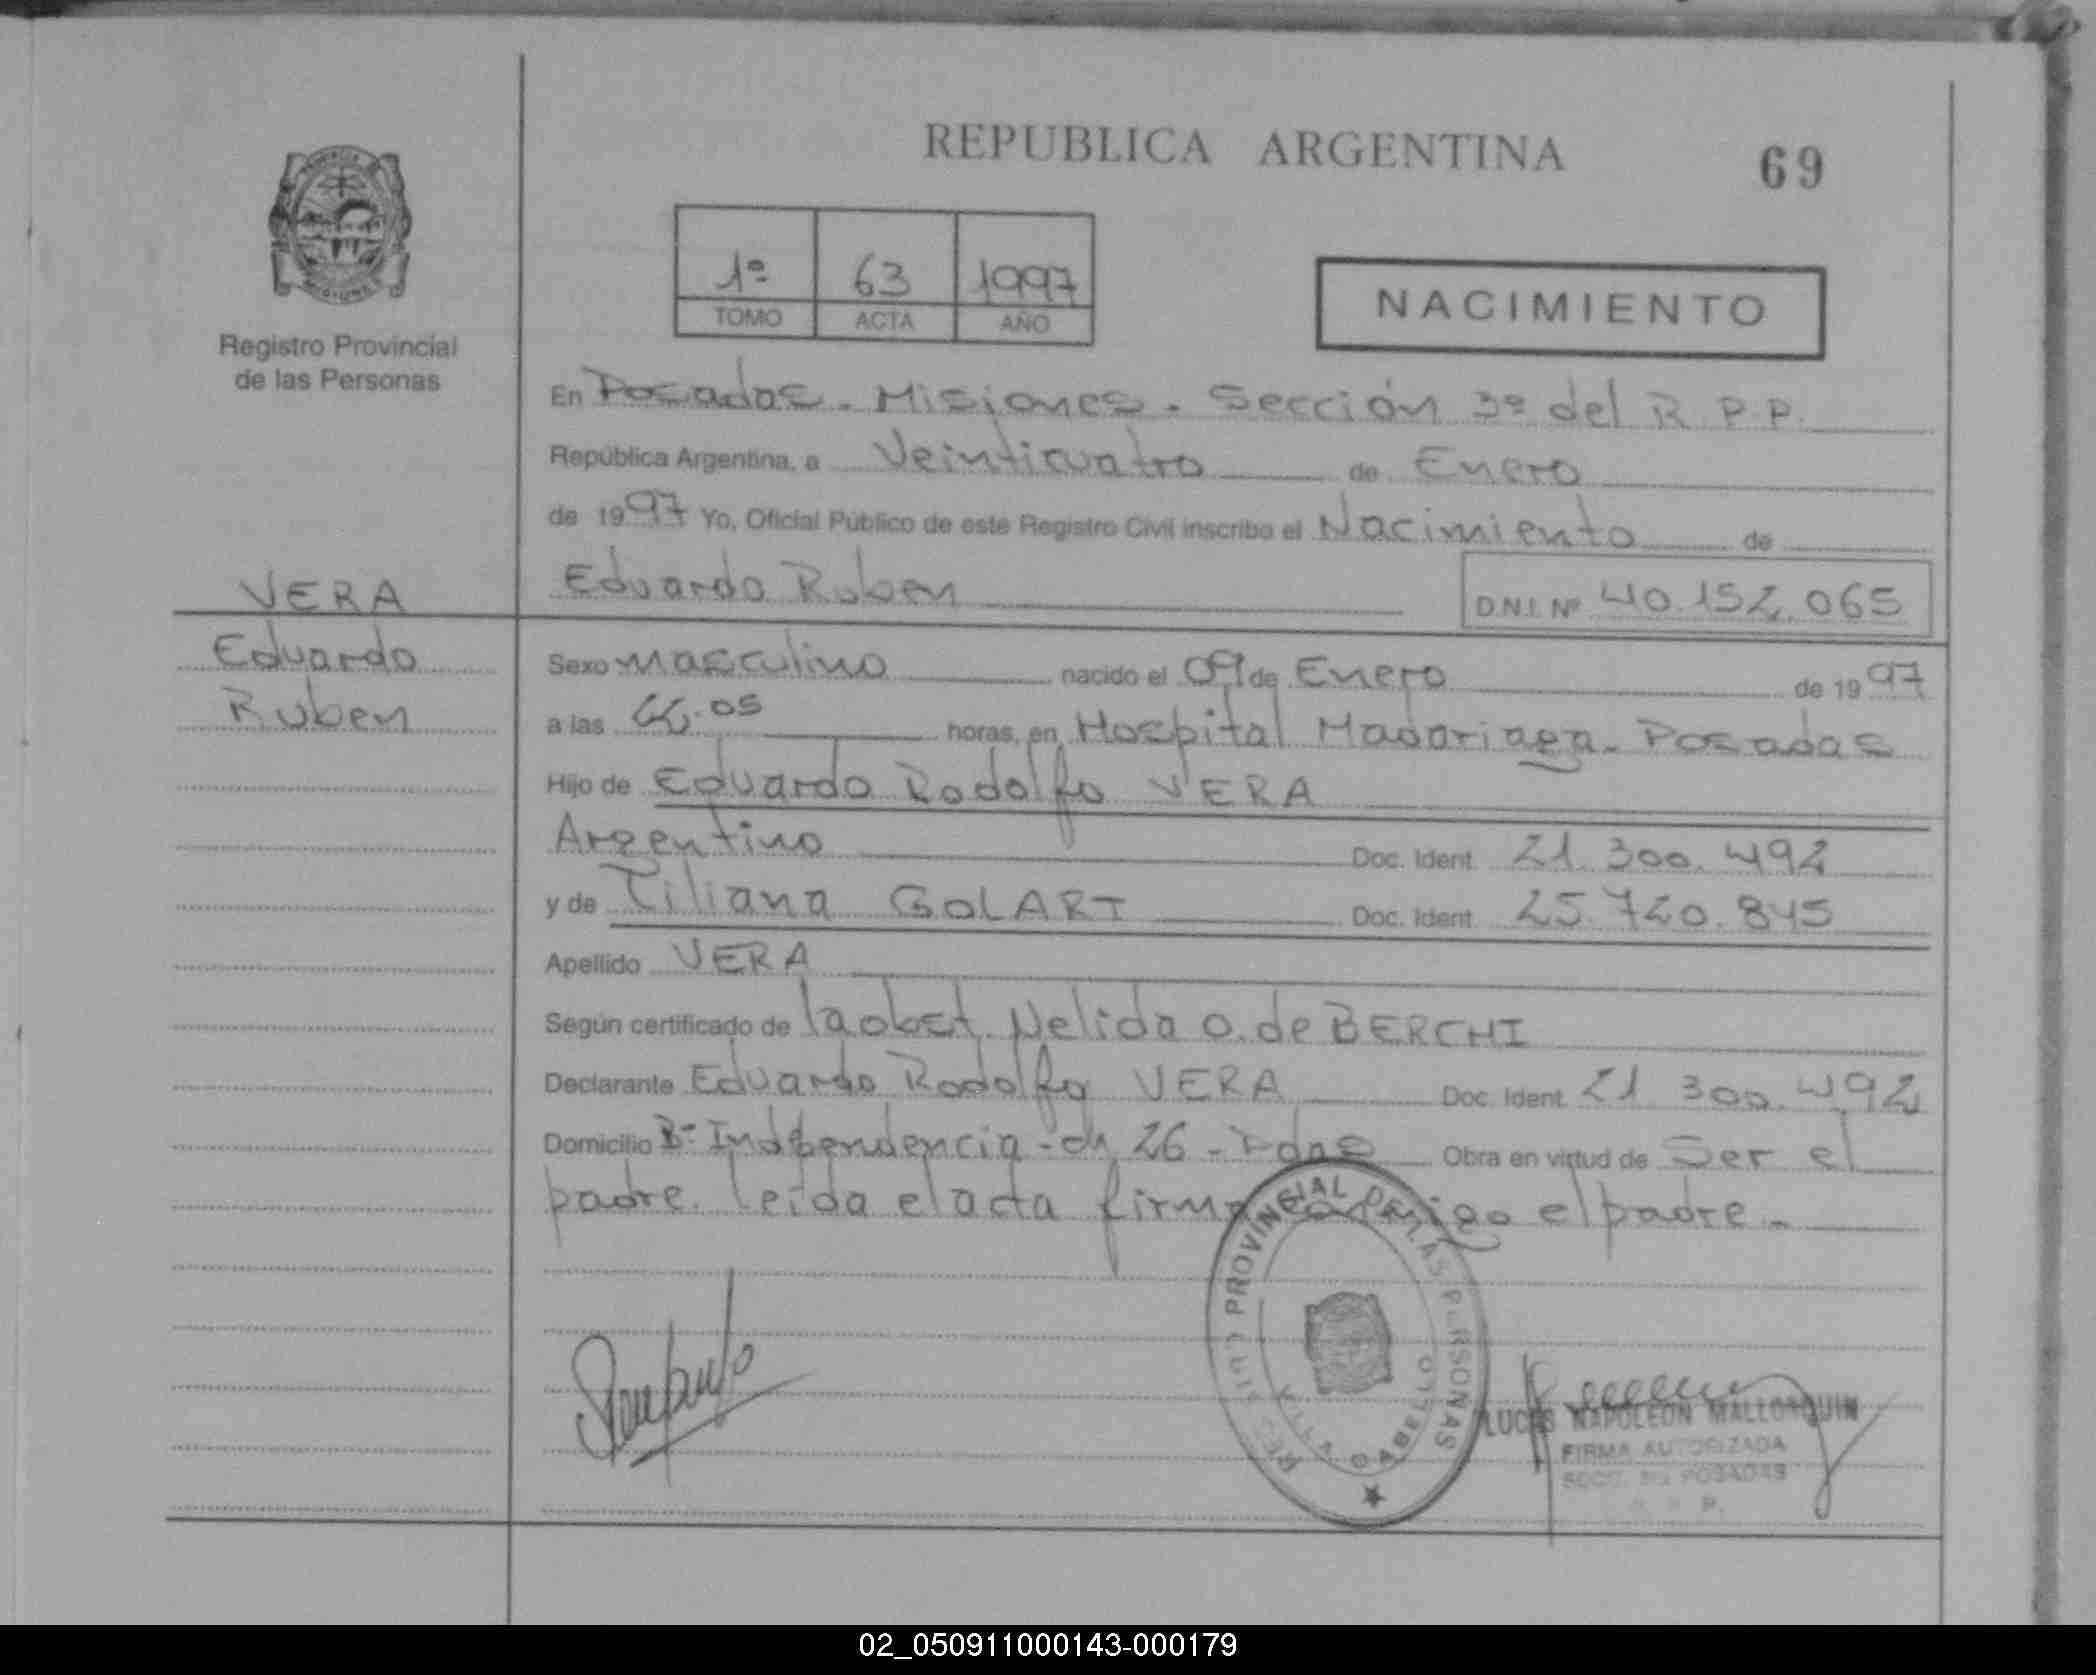 REPUBLICA ARGENTINA
69
1º 63 1997
TOMO ACTA AÑO
NACIMIENTO
Registro Provincial
de las Personas
En Posadas - Misiones - Sección 3º del R.P.P.
República Argentina, a Veinticuatro de Enero
de 1997 Yo, Oficial Público de este Registro Civil inscribo el Nacimiento de
VERA
Eduardo
Ruben
Eduardo Ruben
D.N.I. Nº 40.152.065
Sexo masculino nacido el 09 de Enero de 1997
a las 22.05 horas, en Hospital Madariaga - Posadas
Hijo de Eduardo Rodolfo VERA
Argentino Doc. Ident. 21.300.492
y de Liliana GOLART Doc. Ident. 25.720.845
Apellido VERA
Según certificado de la obst. Nelida O. de BERCHI
Declarante Eduardo Rodolfo VERA Doc. Ident. 21.300.492
Domicilio Bº Independencia - ch 26 - Pdas Obra en virtud de Ser el
padre. leida el acta firma conmigo el padre.-
REGISTRO PROVINCIAL DE LAS PERSONAS
VILLA CABELLO
LUCAS NAPOLEON MALLORQUIN
FIRMA AUTORIZADA
SECC. 3ª POSADAS
02_050911000143-000179